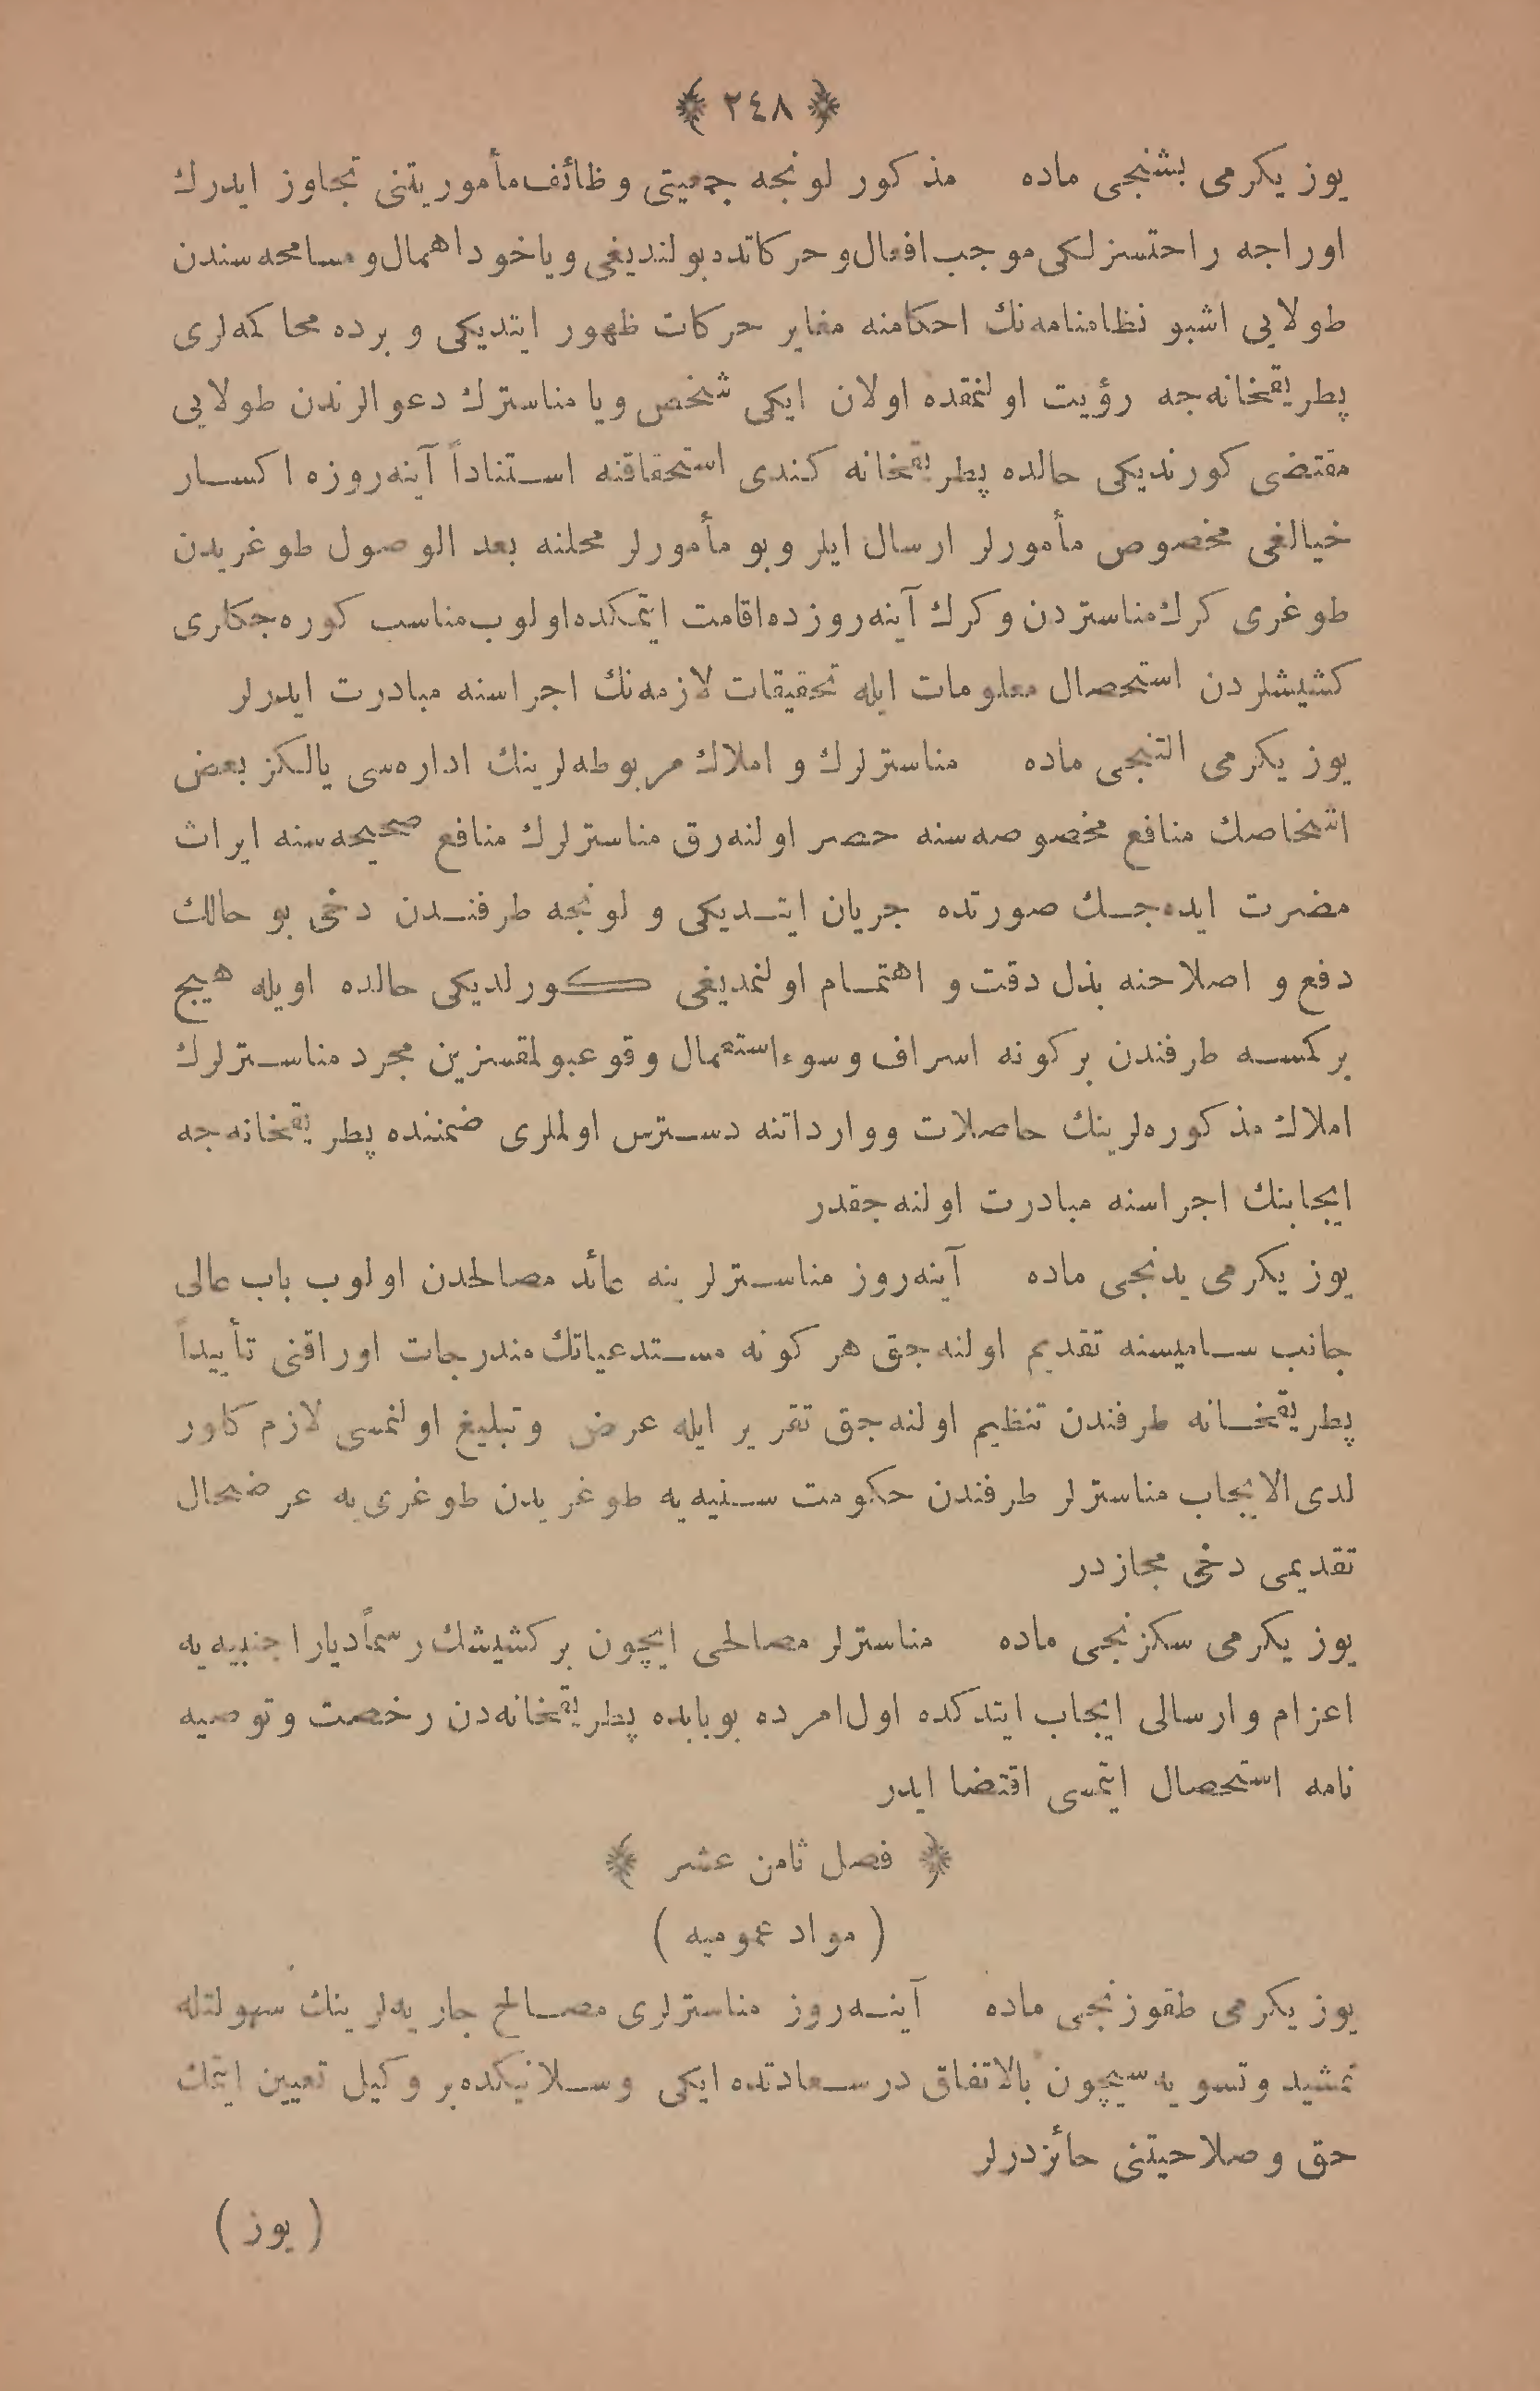 ﴿ ٢٤٨ ﴾
يوز يكرمى بشنجى ماده مذكور لونجه جمعيتى وظائف مأموريتنى تجاوز ايدرك
اوراجه راحتسزلكى موجب افعال و حركاتده بولنديغى وياخود اهمال و مسامحه سندن
طولايى اشبو نظامنامه نك احكامنه مغاير حركات ظهور ايتديكى و برده محاكمه لرى
پطريقخانه جه رؤيت اولنمقده اولان ايكى شخص ويا مناسترك دعوالرندن طولايى
مقتضى كورنديكى حالده پطريقخانه كندى استحقاقنه استناداً آينه روزه اكسار
خيالغى مخصوص مأمورلر ارسال ايلر وبو مأمورلر محلنه بعد الوصول طوغريدن
طوغرى كرك مناستردن و كرك آينه روزده اقامت ايتمكده اولوب مناسب كوره جكلرى
كشيشلردن استحصال معلومات ايله تحقيقات لازمه نك اجراسنه مبادرت ايدرلر
يوز يكرمى التنجى ماده مناسترلرك و املاك مربوطه لرينك اداره سى يالكز بعض
اشخاصك منافع مخصوصه سنه حصر اولنه رق مناسترلرك منافع صحيحه سنه ايراث
مضرت ايده جك صورتده جريان ايتديكى و لونجه طرفندن دخى بو حالك
دفع و اصلاحنه بذل دقت و اهتمام اولنمديغى كورلديكى حالده اويله هيچ
بر كمسه طرفندن بر كونه اسراف وسوء استعمال وقوعبولمقسزين مجرد مناسترلرك
املاك مذكوره لرينك حاصلات ووارداتنه دسترس اولملرى ضمننده پطريقخانه جه
ايجابنك اجراسنه مبادرت اولنه جقدر
يوز يكرمى يدنجى ماده آينه روز مناسترلرينه عائد مصالحدن اولوب باب عالى
جانب ساميسنه تقديم اولنه جق هر كونه مستدعياتك مندرجات اوراقنى تأييداً
پطريقخانه طرفندن تنظيم اولنه جق تقرير ايله عرض وتبليغ اولنمسى لازم كلور
لدى الايجاب مناسترلر طرفندن حكومت سنيه يه طوغريدن طوغرى يه عرضحال
تقديمى دخى مجازدر
يوز يكرمى سكزنجى ماده مناسترلر مصالحى ايچون بر كشيشك رسماً ديار اجنبيه يه
اعزام وارسالى ايجاب ايتدكده اول امرده بوبابده پطريقخانه دن رخصت وتوصيه
نامه استحصال ايتمسى اقتضا ايدر
﴿ فصل ثامن عشر ﴾
( مواد عموميه )
يوز يكرمى طقوزنجى ماده آينه روز مناسترلرى مصالح جاريه لرينك سهولتله
تمشيد وتسويه سيچون بالاتفاق درسعادتده ايكى وسلانيكده بر وكيل تعيين ايتمك
حق وصلاحيتنى حائزدرلر
( يوز )